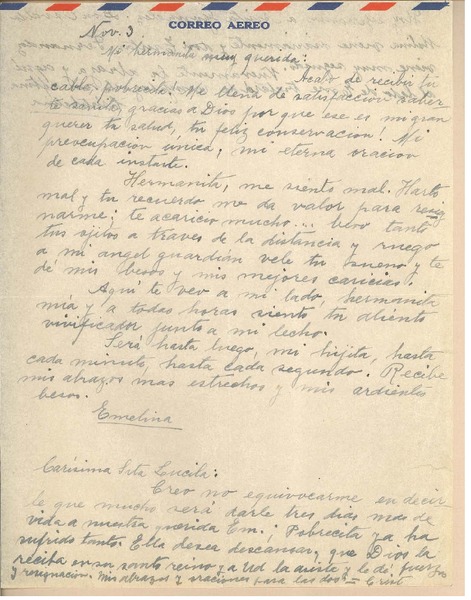 CORREO AEREO
Nov. 3
Mi hermanita muy querida:
Acabo de recibir tu
cable, pobrecita! Me llena de satisfacción saber
te sanita gracias a Dios por que ese es mi gran
querer tu salud, tu feliz conservación! Mi
preocupación unica, mi eterna oración
de cada instante.
Hermanita, me siento mal. Harto
mal y tu recuerdo me da valor para resig
narme; te acaricio mucho... beso tanto
tus ojitos a traves de la distancia y ruego
a mi angel guardián vele tu sueño y te
dé mis besos y mis mejores caricias.
Aquí te veo a mi lado, hermanita
mía y a todas horas siento tu aliento
vivificador junto a mi lecho.
Será hasta luego, mi hijita, hasta
cada minuto, hasta cada segundo. Recibe
mis abrazos mas estrechos y mis ardientes
besos.
Emelina
Carísima Sta Lucila:
Creo no equivocarme en decir
le que mucho será darle tres dias mas de
vida a nuestra querida Em.; Pobrecita ya ha
sufrido tanto. Ella desea descansar, que Dios la
reciba en su santo reino y a Ud la asista y le dé fuerza
y resignacion. Mis abrazos y oraciones para las dos =